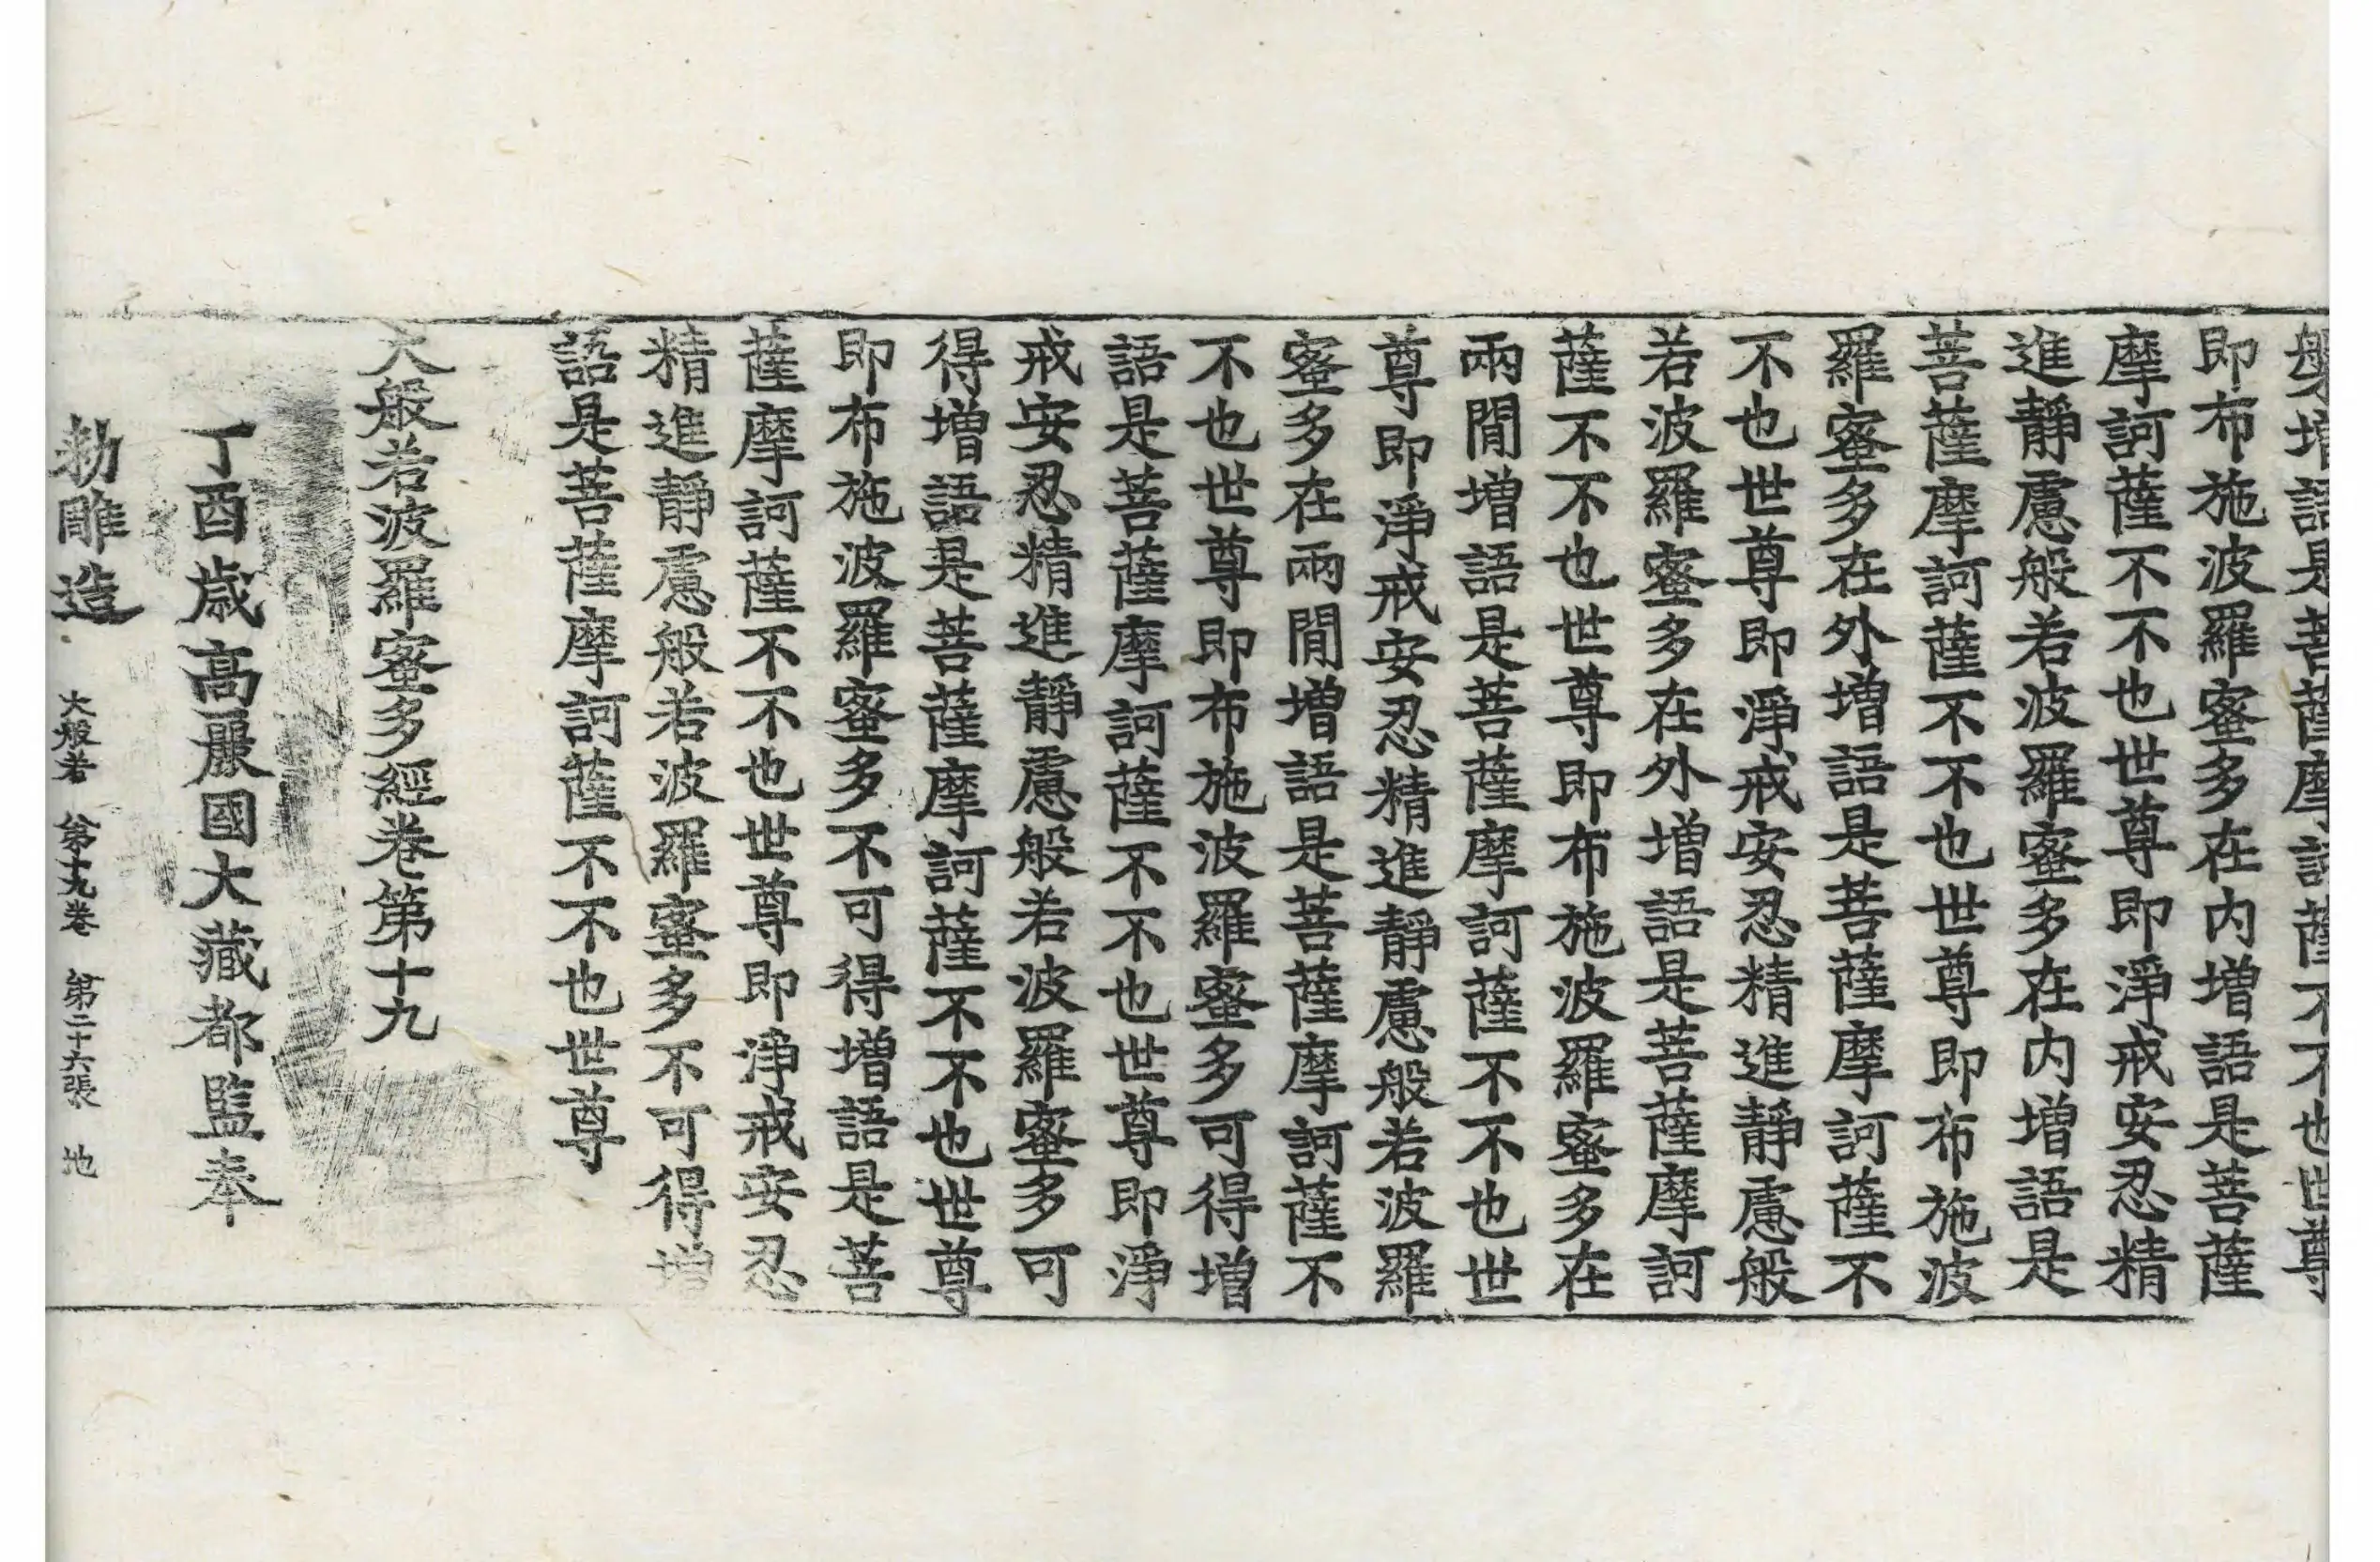 槃增語是菩薩摩訶薩不不也世尊
即布施波羅蜜多在内增語是菩薩
摩訶薩不不也世尊即淨戒安忍精
進靜慮般若波羅蜜多在内增語是
菩薩摩訶薩不不也世尊即布施波
羅蜜多在外增語是菩薩摩訶薩不
不也世尊即淨戒安忍精進靜慮般
若波羅蜜多在外增語是菩薩摩訶
薩不不也世尊即布施波羅蜜多在
兩閒增語是菩薩摩訶薩不不也世
尊即淨戒安忍精進靜慮般若波羅
蜜多在兩閒增語是菩薩摩訶薩不
不也世尊即布施波羅蜜多可得增
語是菩薩摩訶薩不不也世尊即淨
戒安忍精進靜慮般若波羅蜜多可
得增語是菩薩摩訶薩不不也世尊
即布施波羅蜜多不可得增語是菩
薩摩訶薩不不也世尊即淨戒安忍
精進靜慮般若波羅蜜多不可得增
語是菩薩摩訶薩不不也世尊
大般若波羅蜜多經卷第十九
丁酉歲高麗國大藏都監奉
勅雕造
大般若 第十九卷 第二十六張 地